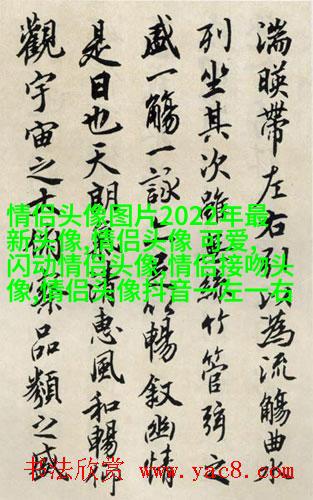 湍暎帶左右引以為流觴曲
列坐其次雖無絲竹管弦之
盛一觴一詠亦足以暢叙幽情
是日也天朗氣清惠風和暢仰
觀宇宙之大俯察品類之盛
情侣头像图片2022年最
新头像,情侣头像 可爱,
闪动情侣头像,情侣接吻头
像,情侣头像抖音一左一右
书法欣赏 www.yac8.com